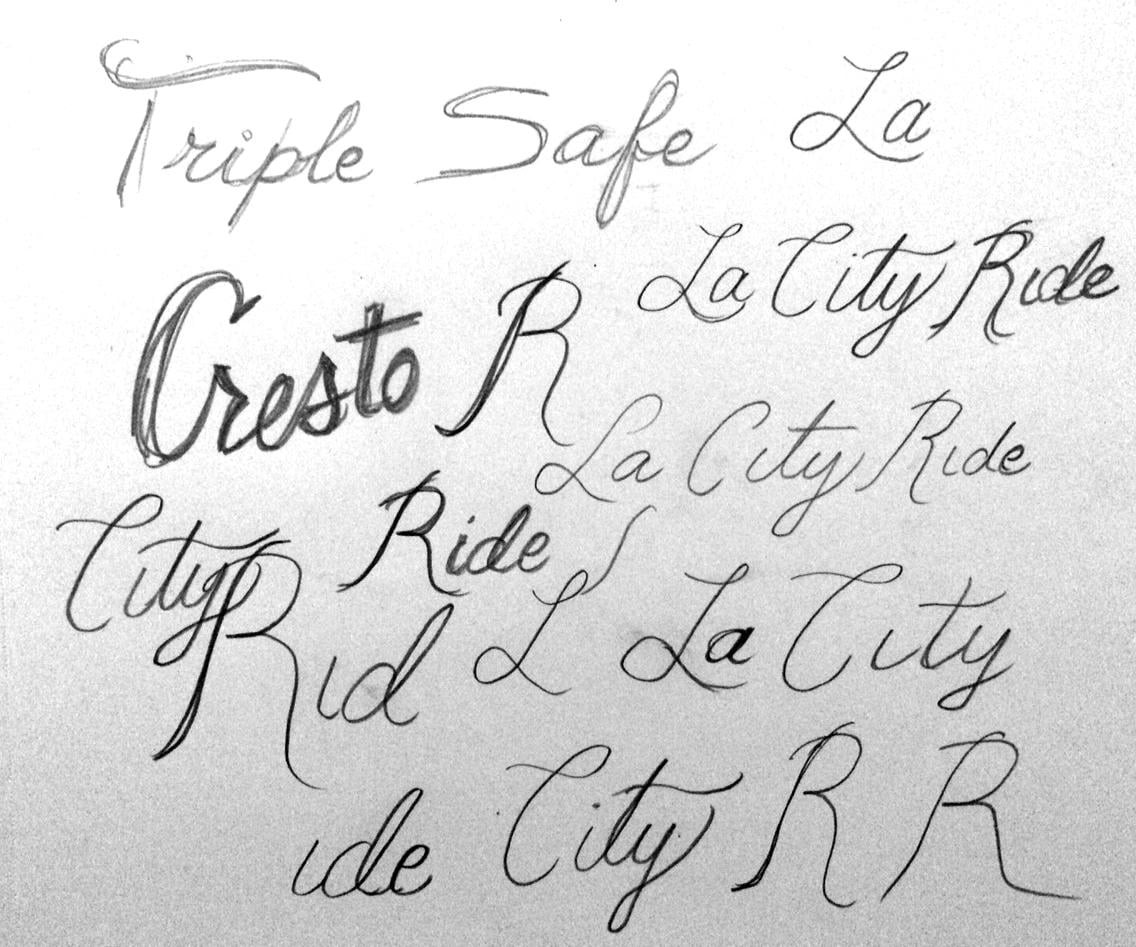 Triple Safe La
La City Ride
Cresto R
La City Ride
City Ride
Rid L La City
ide City R R